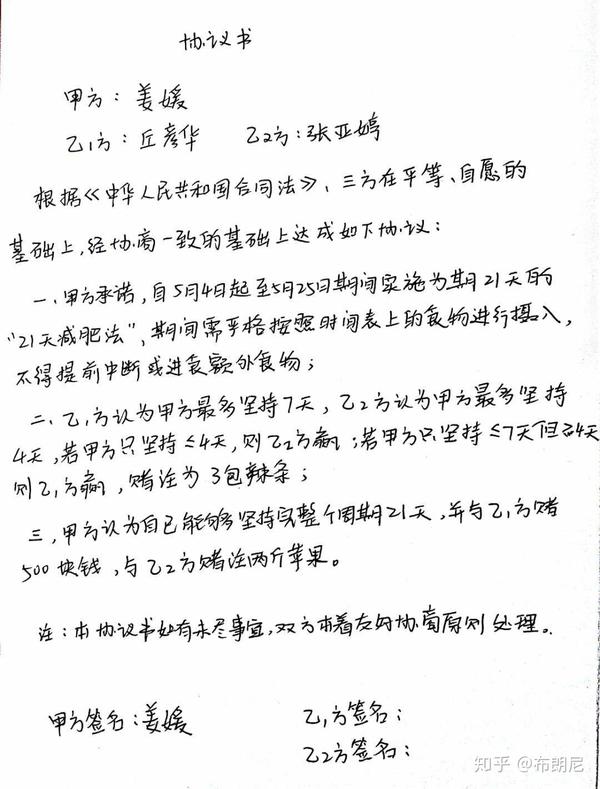 协议书
甲方：姜媛
乙1方：丘彦华 乙2方：张亚婷
根据《中华人民共和国合同法》，三方在平等、自愿的
基础上，经协商一致的基础上达成如下协议：
一、甲方承诺，自5月4日起至5月25日期间实施为期21天的
"21天减肥法"，期间需严格按照时间表上的食物进行摄入，
不得提前中断或进食额外食物；
二、乙1方认为甲方最多坚持7天，乙2方认为甲方最多坚持
4天，若甲方只坚持≤4天，则乙2方赢；若甲方只坚持≤7天但≥4天
则乙1方赢，赌注为3包辣条；
三，甲方认为自己能够坚持完整个周期21天，并与乙1方赌
500块钱，与乙2方赌注两斤苹果。
注：本协议书如有未尽事宜，双方本着友好协商原则处理。
甲方签名：姜媛 乙1方签名：
乙2方签名：
知乎 @布朗尼